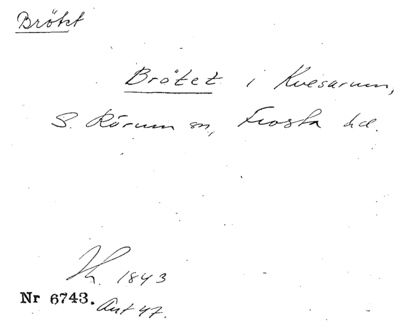 Brötet
Brötet i Kvesarum,
S. Rörum sn, Frosta hd.
Th. 1843
Nr 6743. Ant 47.